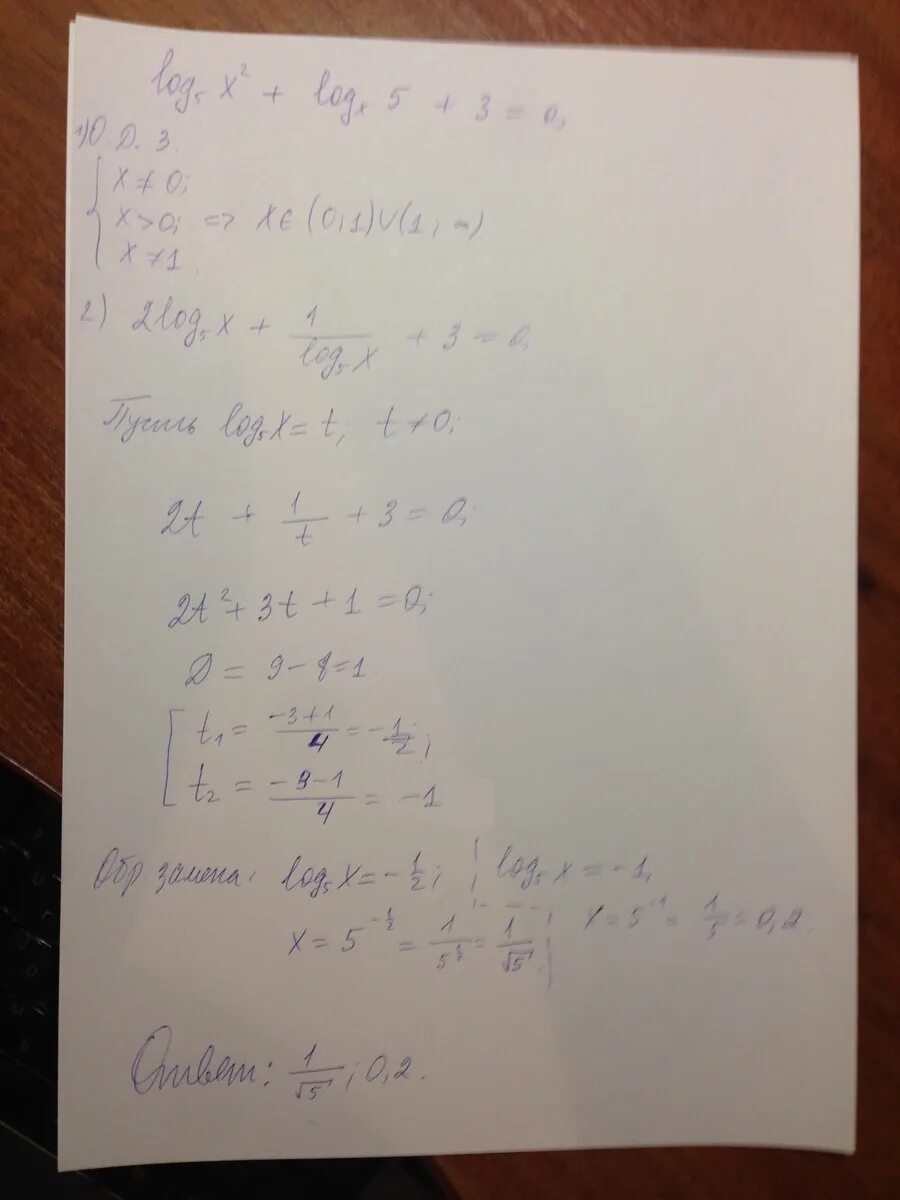 log₅ x² + logₓ 5 + 3 = 0;
1) О. Д. З.
{ x ≠ 0;
x > 0; => x ∈ (0;1) ∪ (1; ∞)
x ≠ 1
2) 2log₅ x + 1/(log₅ x) + 3 = 0;
Пусть log₅ x = t; t ≠ 0;
2t + 1/t + 3 = 0;
2t² + 3t + 1 = 0;
D = 9 - 8 = 1
[ t₁ = (-3+1)/4 = -1/2;
t₂ = (-3-1)/4 = -1
Обр замена: log₅ x = -1/2; | log₅ x = -1;
x = 5^(-1/2) = 1/5^(1/2) = 1/√5 | x = 5^(-1) = 1/5 = 0,2.
Ответ: 1/√5; 0,2.